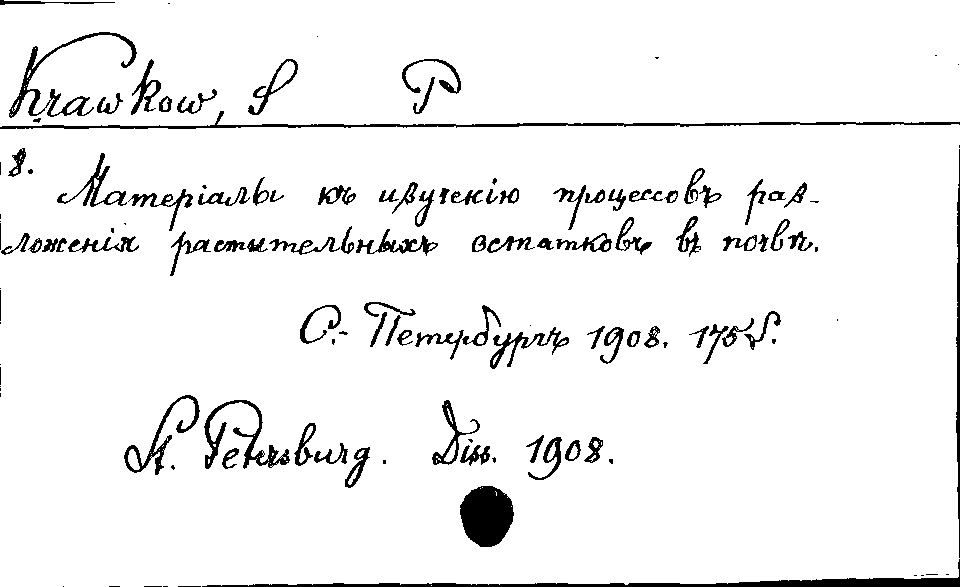 Krawkow, S P
8.
Матеріалы къ изученію процессовъ раз-
ложенія растительныхъ остатковъ въ почвѣ.
С.- Петербургъ 1908. 175 S.
St. Petersburg. Diss. 1908.